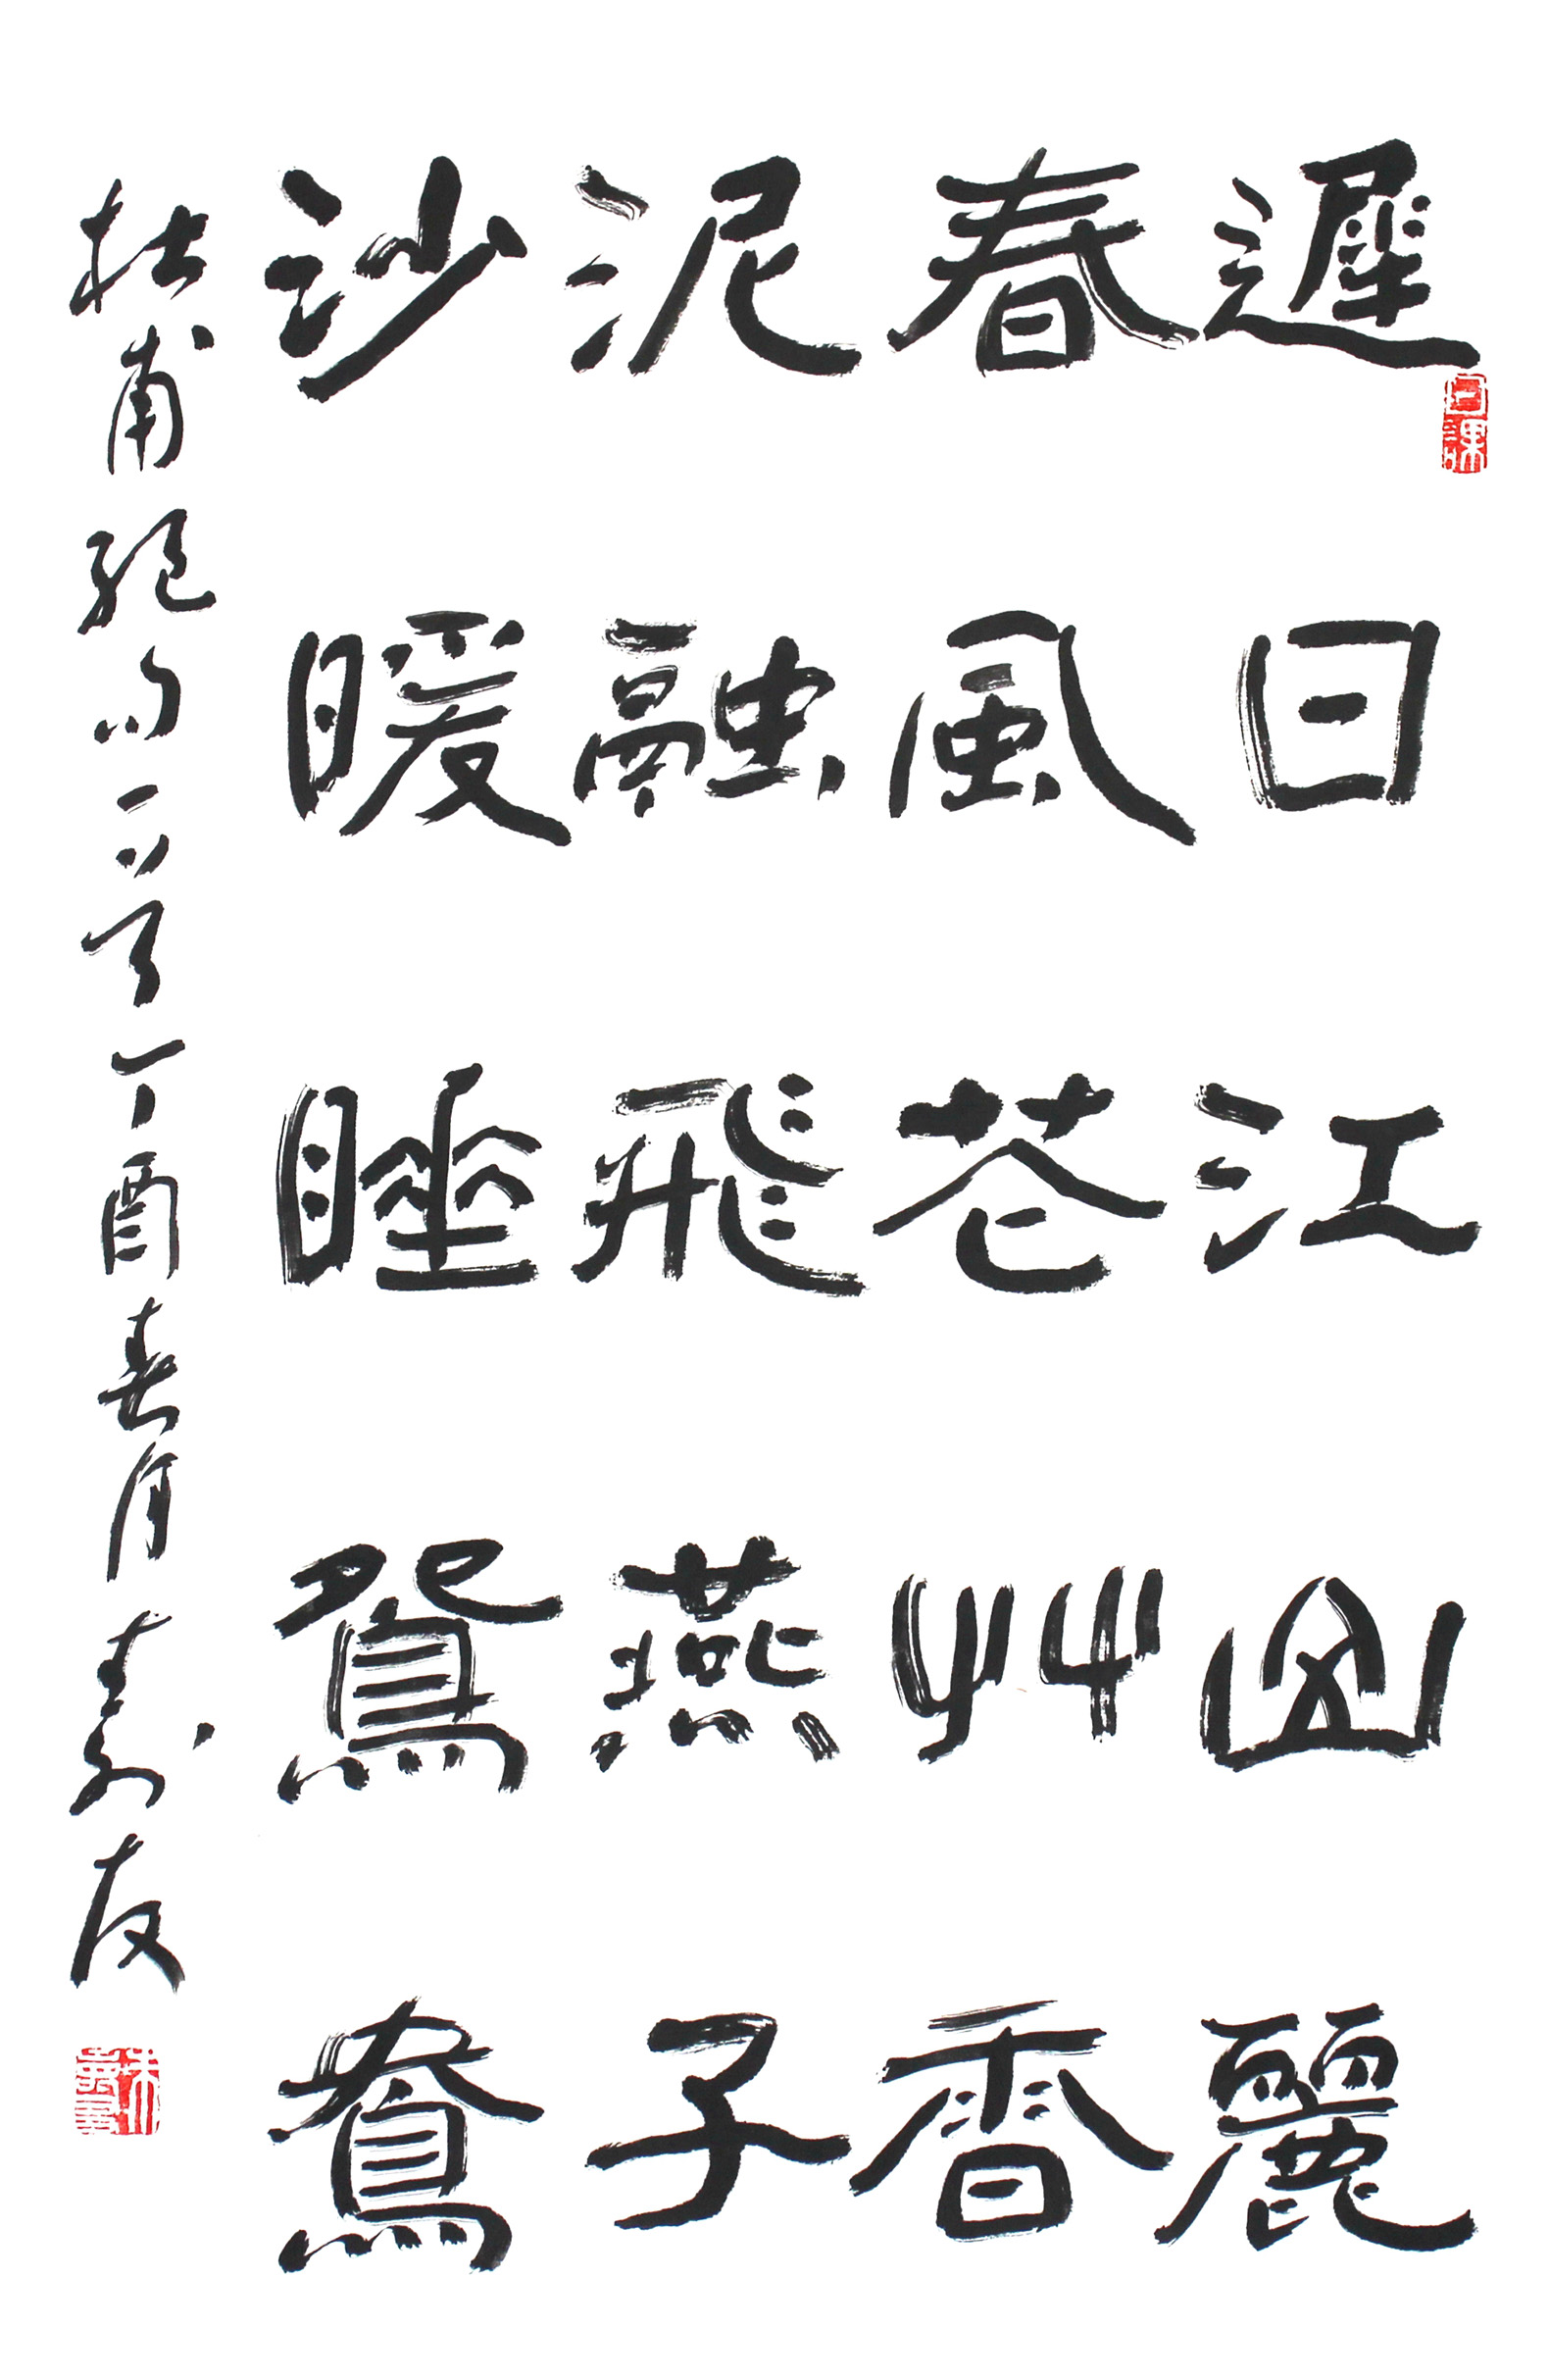 遲日江山麗
春風花艸香
泥融飛燕子
沙暖睡鴛鴦
杜甫絕句一首丁酉春月壽友
日課
朱壽友